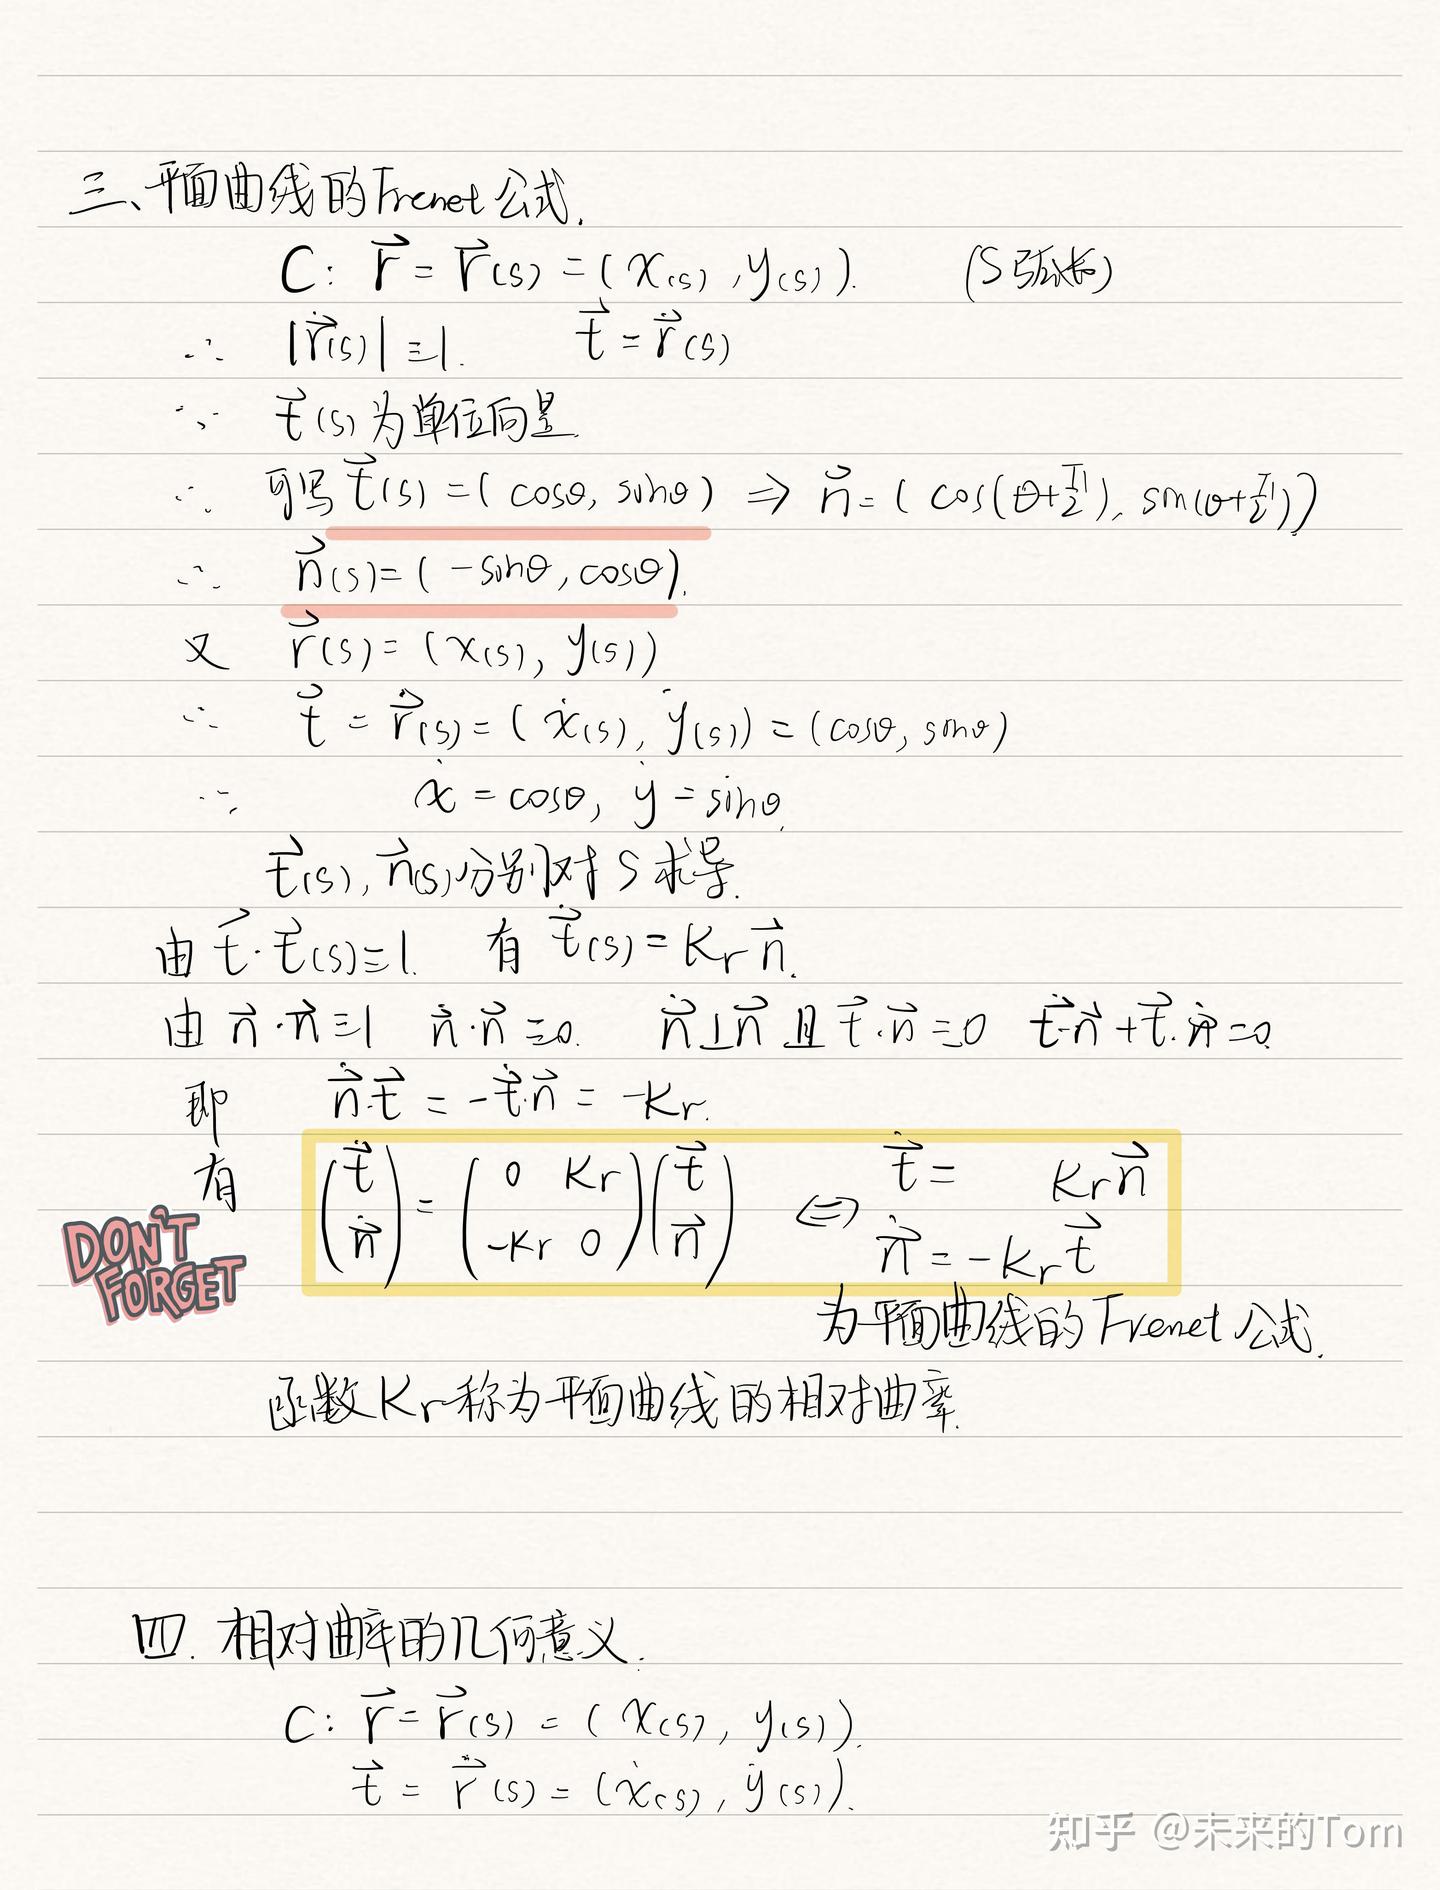 三、平面曲线的Frenet公式.
C: r⃗ = r⃗(s) = (x(s), y(s)). (S弧长)
∴ |ṙ⃗(s)| ≡ 1. t⃗ = ṙ⃗(s)
∵ t⃗(s)为单位向量
∴ 可写 t⃗(s) = (cosθ, sinθ) ⇒ n⃗ = (cos(θ+π/2), sin(θ+π/2))
∴ n⃗(s) = (-sinθ, cosθ).
又 r⃗(s) = (x(s), y(s))
∴ t⃗ = ṙ⃗(s) = (ẋ(s), ẏ(s)) = (cosθ, sinθ)
∴ ẋ = cosθ, ẏ = sinθ.
t⃗(s), n⃗(s)分别对S求导.
由 t⃗·t⃗(s) ≡ 1. 有 ṫ⃗(s) = Kr n⃗.
由 n⃗·n⃗ ≡ 1 ṅ⃗·n⃗ ≡ 0. ṅ⃗⊥n⃗ 且 t⃗·n⃗ ≡ 0 ṫ⃗·n⃗ + t⃗·ṅ⃗ = 0.
即 ṅ⃗·t⃗ = -ṫ⃗·n⃗ = -Kr.
有 (ṫ⃗ ; ṅ⃗) = (0 Kr ; -Kr 0)(t⃗ ; n⃗) ⇔ ṫ⃗ = Kr n⃗
ṅ⃗ = -Kr t⃗
DON'T
FORGET
为平面曲线的Frenet公式.
函数Kr称为平面曲线的相对曲率.
四. 相对曲率的几何意义.
C: r⃗ = r⃗(s) = (x(s), y(s)).
t⃗ = ṙ⃗(s) = (ẋ(s), ẏ(s)).
知乎 @未来的Tom